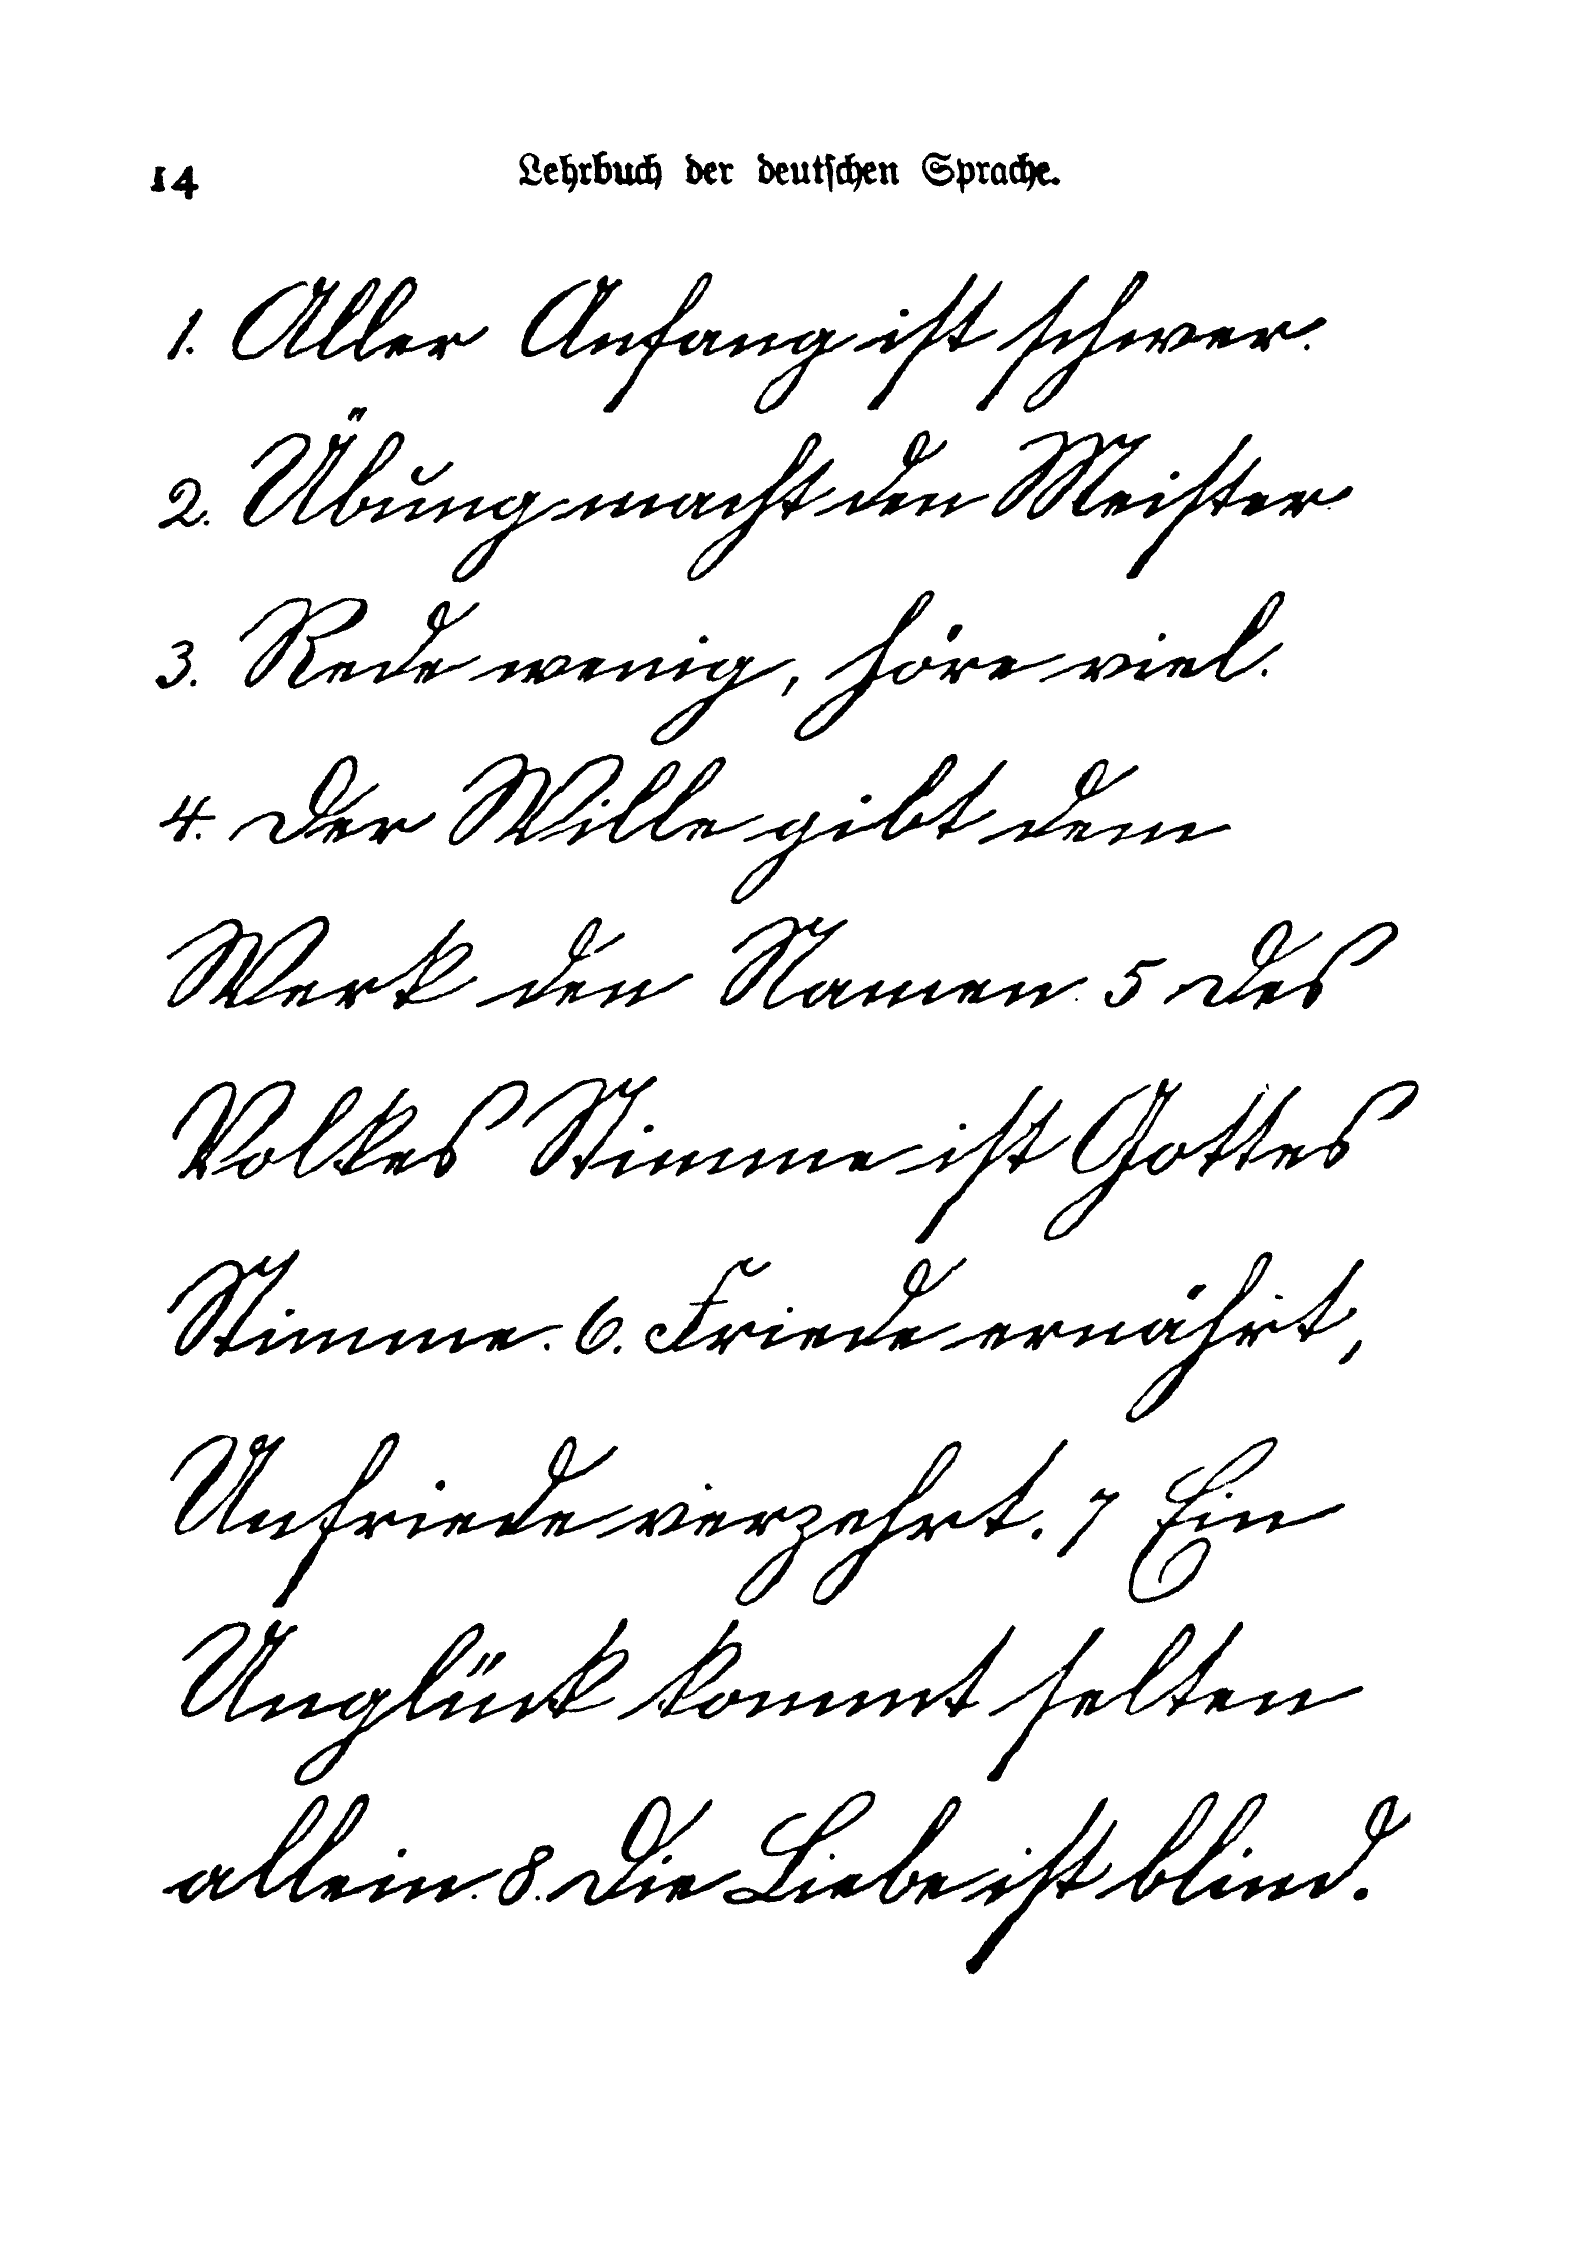 14 Lehrbuch der deutschen Sprache.
1. Aller Anfang ist schwer.
2. Übung macht den Meister.
3. Rede wenig, höre viel.
4. Der Wille gibt dem
Werk den Namen. 5 Des
Volkes Stimme ist Gottes
Stimme. 6. Friede ernährt,
Unfriede verzehrt. 7 Ein
Unglück kommt selten
allein. 8. Die Liebe ist blind.